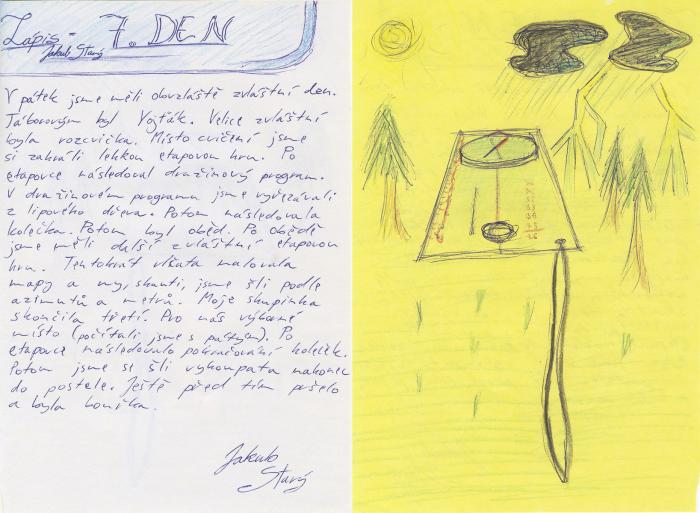 Zápis - 7. DEN
Jakub Starý
V pátek jsme měli obvzláště zvláštní den.
Táborovým byl Vojťák. Velice zvláštní
byla rozcvička. Místo cvičení jsme
si zahráli lehkou etapovou hru. Po
etapovce následoval družinový program.
V družinovém programu jsme vyřezávali
z lipového dřeva. Potom následovala
kolečka. Potom byl oběd. Po obědě
jsme měli další zvláštní etapovou
hru. Tentokrát vlčata malovala
mapy a my, skauti, jsme šli podle
azimutů a metrů. Moje skupinka
skončila třetí. Pro nás výborné
místo (počítali jsme s pátým). Po
etapovce následovalo pokračování koleček.
Potom jsme si šli vykoupat a nakonec
do postele. Ještě před tím pršelo
a byla bouřka.
Jakub
Starý